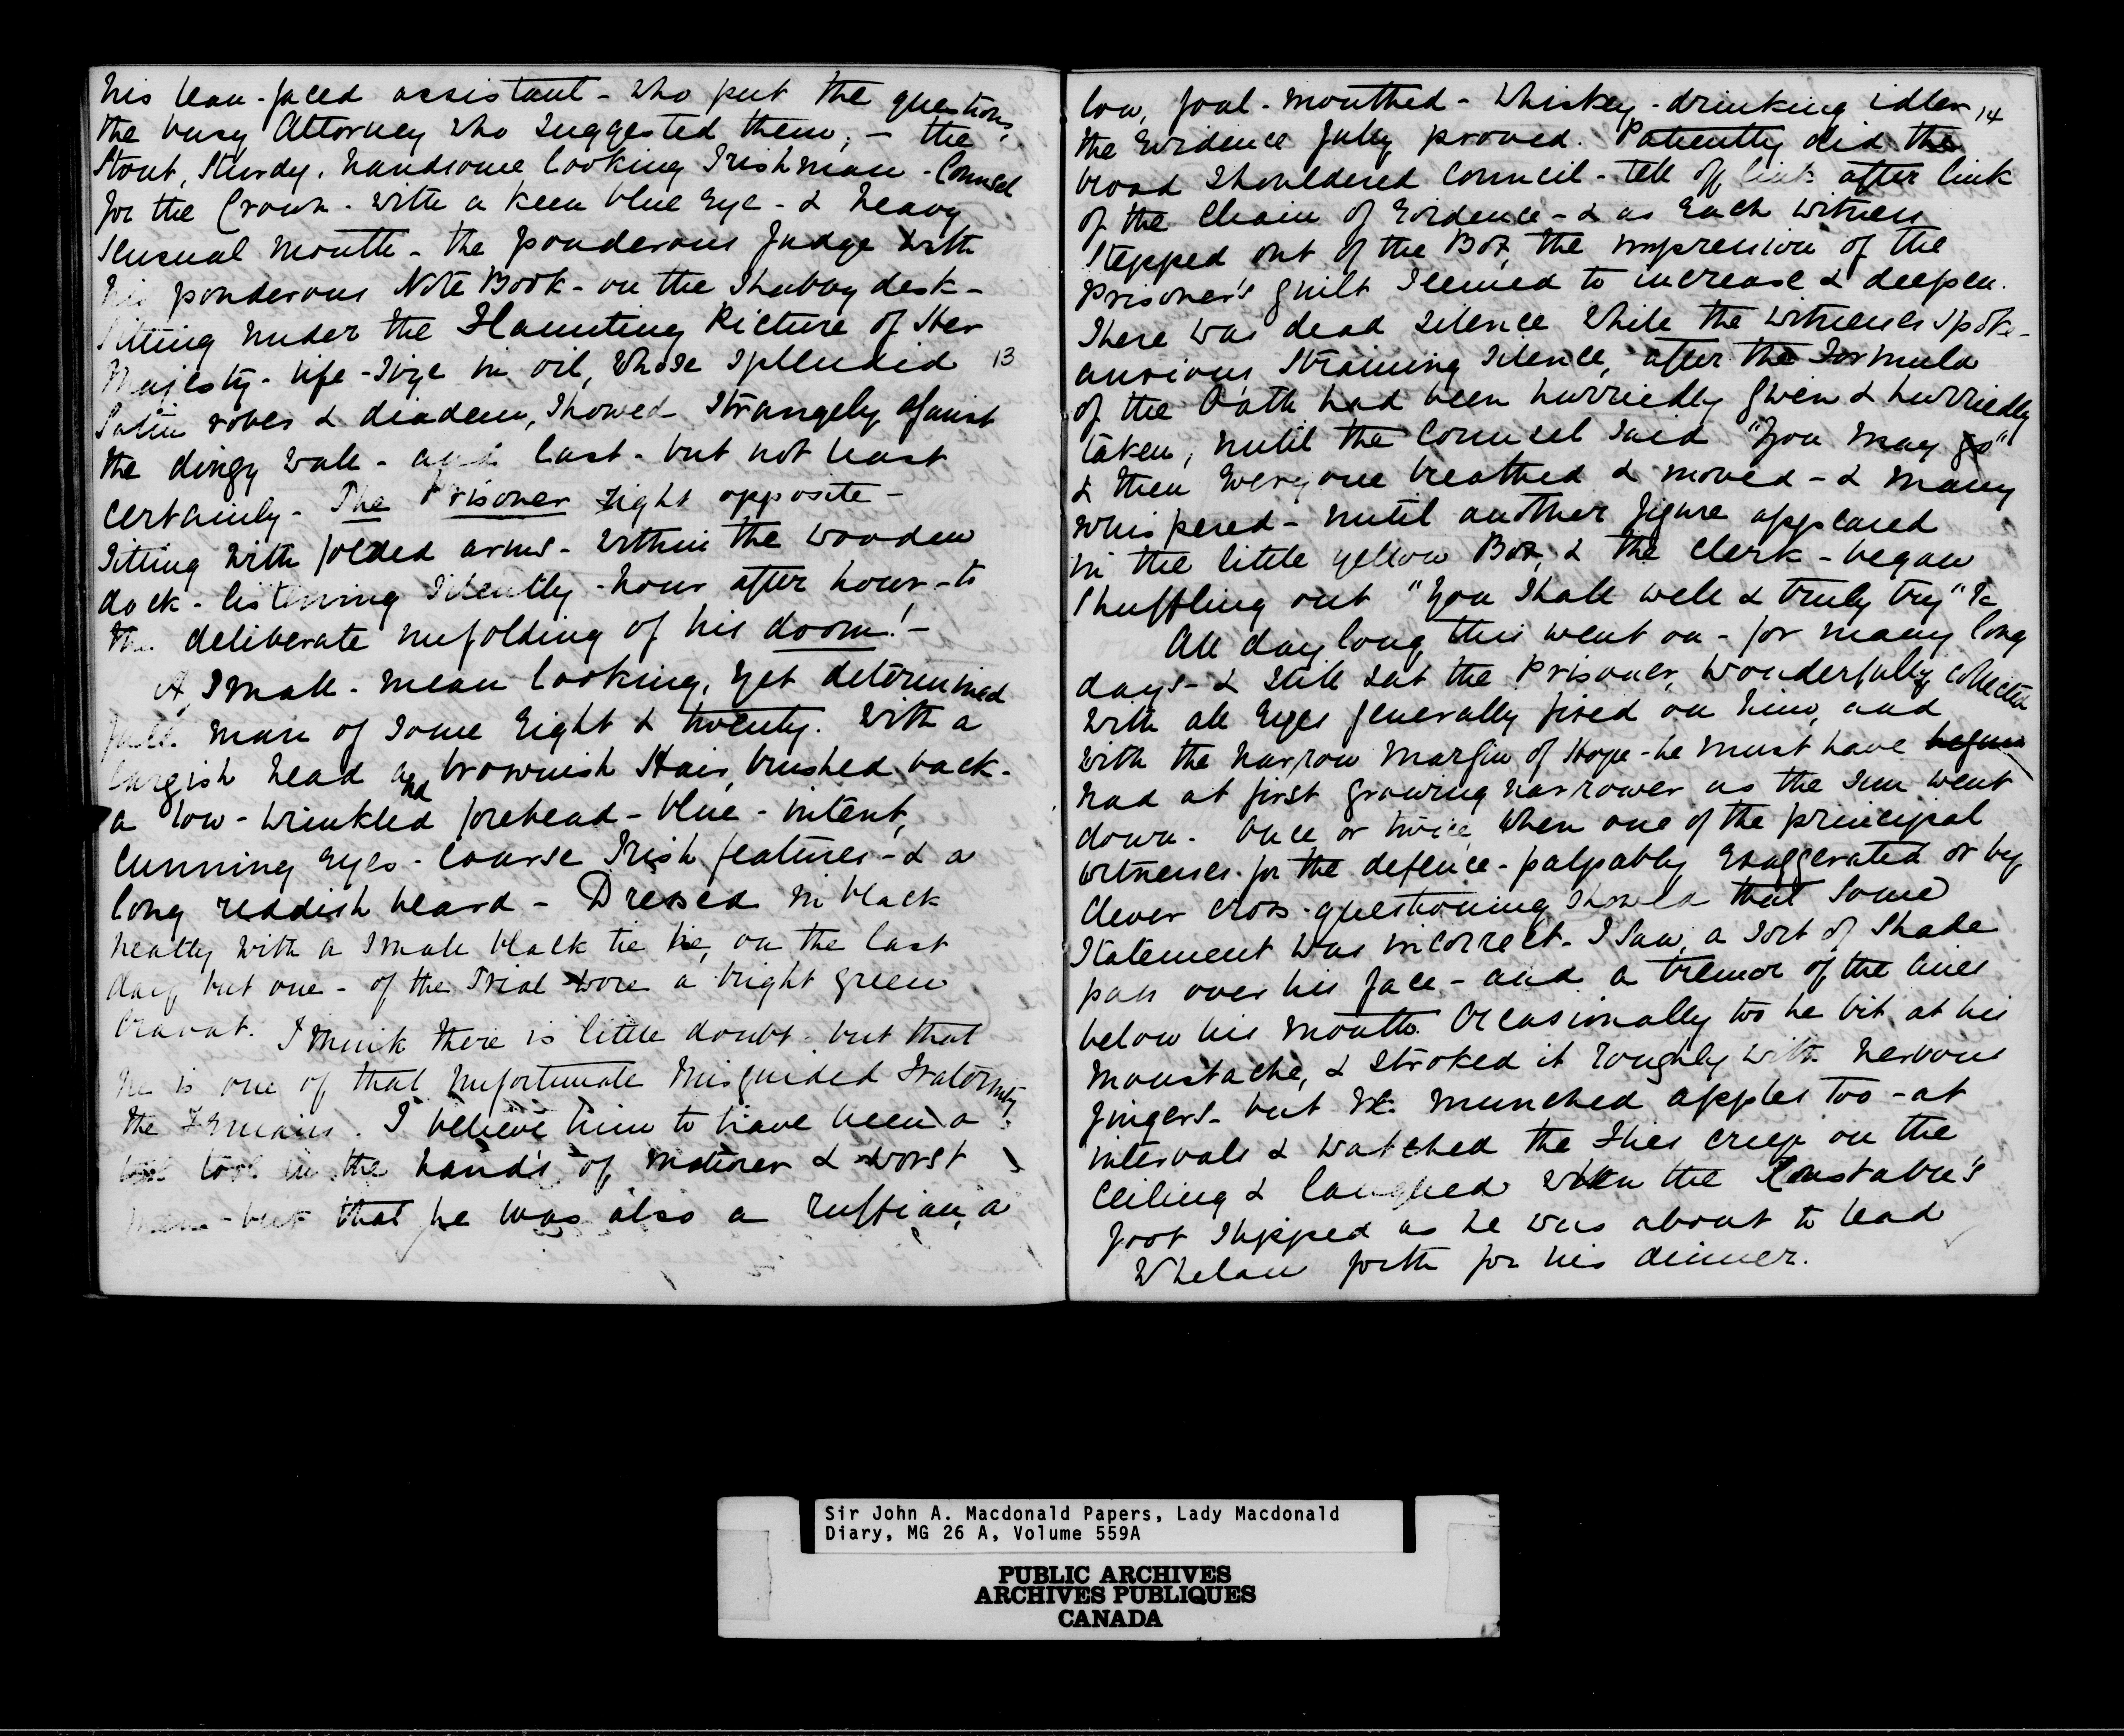 his lean-faced assistant - who put the questions,
the busy Attorney who suggested them; - the
Stout, Sturdy, handsome looking Irishman - Counsel
for the Crown - with a keen blue Eye - & heavy
sensual mouth - the ponderous Judge with
his ponderous Note Book - on the Shabby desk -
Sitting under the Flaunting Picture of Her
Majesty - life-size in oil, whose splendid 13
Satin robes & diadem, showed strangely against
the dingy wall - and last - but not least
certainly - The Prisoner right opposite -
Sitting with folded arms - within the wooden
dock - listening silently - hour after hour - to
the deliberate unfolding of his doom! -
A small - mean looking, yet determined
man of some Eight & twenty. With a
largish head and brownish Hair, brushed back -
a low - wrinkled forehead - blue - intent,
cunning Eyes - coarse Irish features - & a
long reddish beard - Dressed in black
neatly with a small black tie he, on the last
day but one - of the Trial wore a bright green
Cravat. I think there is little doubt but that
he is one of that unfortunate misguided Fraternity
the Fenians. I believe him to have been a
tool in the hands of and worst
men - but that he was also a ruffian, a
low, foul-mouthed - whiskey-drinking idler 14
the Evidence fully proved. Patiently did the
broad shouldered Council - tell off link after link
of the Chain of Evidence - & as Each witness
Stepped out of the Box, the impression of the
Prisoner's guilt seemed to increase & deepen.
There was dead silence while the witnesses spoke -
anxious, straining silence, after the Formula
of the Oath had been hurriedly given & hurriedly
taken, until the Counsel said "You may go"
& then Everyone breathed & moved - & many
whispered - until another figure appeared
in the little yellow Box, & the Clerk - began
Shuffling out "You shall well & truly try" &c
All day long this went on - for many long
days - & still sat the Prisoner, wonderfully collected
with all Eyes generally fixed on him, and
with the narrow margin of Hope - he must have begun
had at first growing narrower as the sun went
down. Once or twice, when one of the principal
witnesses for the defence - palpably Exaggerated or by
clever cross-questioning showed that some
Statement was incorrect - I saw, a sort of Shade
pass over his face - and a tremor of the lines
below his mouth. Occasionally too he bit at his
moustache, & stroked it roughly with nervous
fingers - but he munched apples too - at
intervals & watched the flies creep on the
ceiling & laughed when the Constable's
foot slipped as he was about to lead
Whelan forth for his dinner.
Sir John A. Macdonald Papers, Lady Macdonald
Diary, MG 26 A, Volume 559A
PUBLIC ARCHIVES
ARCHIVES PUBLIQUES
CANADA